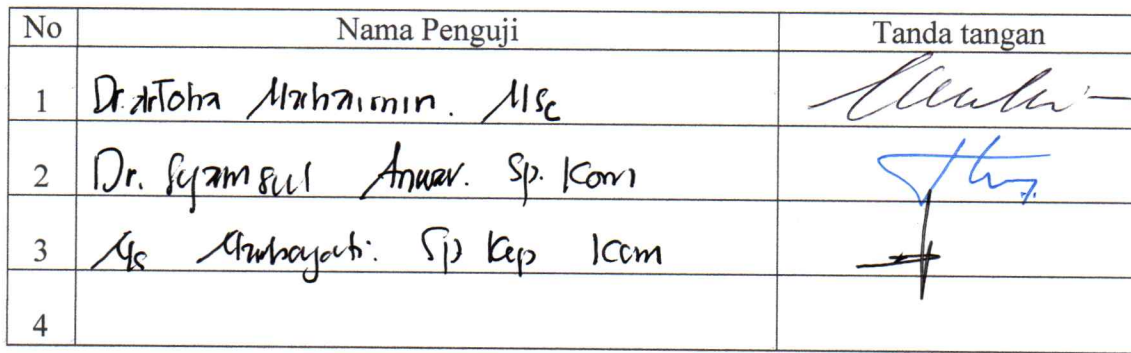 No Nama Penguji Tanda tangan
1 Dr. dr Toha Muhaimin. MSc
2 Dr. Syamsul Anwar. Sp. Kom
3 Ns Sp Kep Kom
4